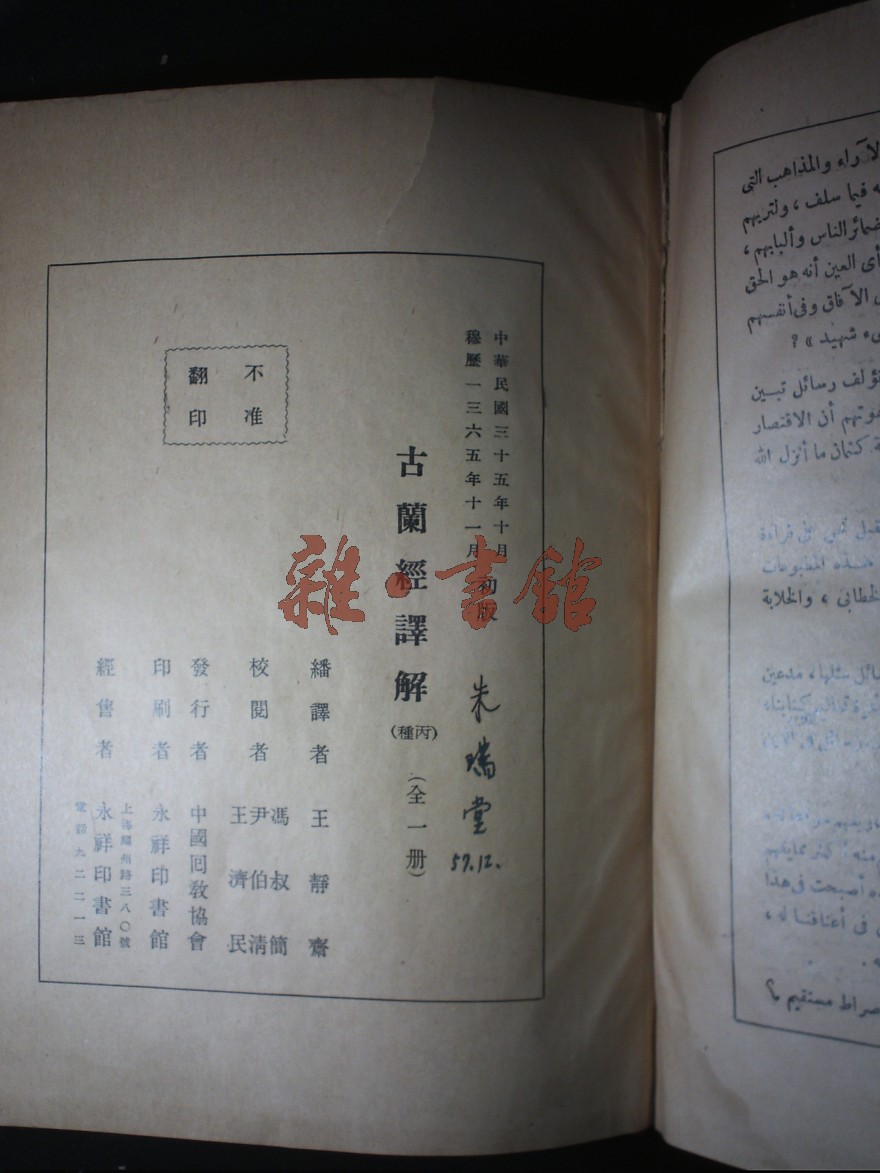 中華民國三十五年十月
穆歷一三六五年十一月
初版
朱瑞堂
57.12.
古蘭經譯解
(丙種)
(全一册)
繙譯者 王靜齋
校閱者 馮叔簡 尹伯清 王濟民
發行者 中國回教協會
印刷者 永祥印書館
經售者 永祥印書館
上海福州路三八〇號
電話九二二一三
不准
翻印
雜·書館
الآراء والمذاهب التي
فيما سلف ، ولتريهم
ضمائر الناس وألبابهم ،
رأى العين أنه هو الحق
الآفاق وفي أنفسهم
شهيد » ?
تؤلف رسائل تبين
يفوتهم أن الاقتصار
كتمان ما أنزل الله
في قراءة
هذه المطبوعات
الخطابي ، والخلابة
مدعين
أصبحت في هذا
في أعناقنا له ،
صراط مستقيم ؟